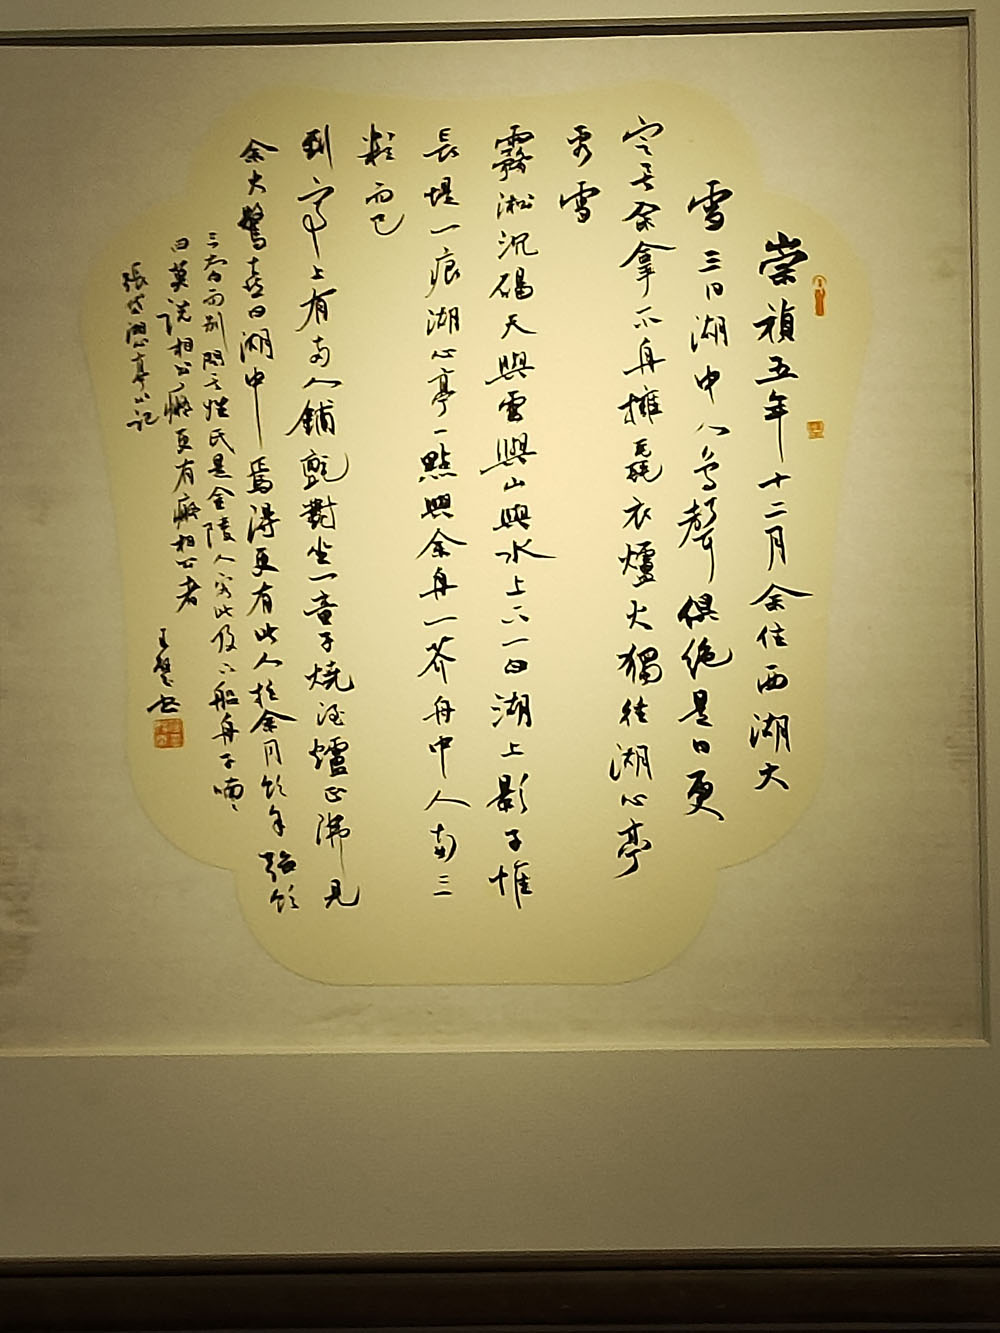 崇禎五年十二月余住西湖大
雪三日湖中人鳥聲俱絶是日更
定矣余拏一小舟擁毳衣爐火獨往湖心亭
看雪
霧淞沆碭天與雲與山與水上下一白湖上影子惟
長堤一痕湖心亭一點與余舟一芥舟中人兩三
粒而已
到亭上有兩人鋪氈對坐一童子燒酒爐正沸見
余大驚喜曰湖中焉得更有此人拉余同飲余強飲
三大白而別問其姓氏是金陵人客此及下船舟子喃喃
曰莫説相公癡更有癡相公者
張岱湖心亭小記